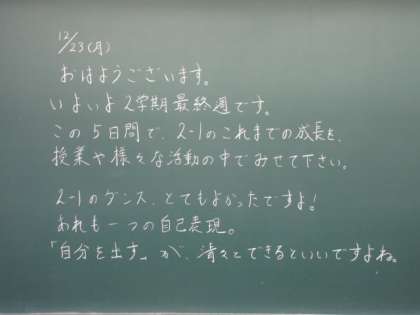 12/23(月)
おはようございます。
いよいよ2学期最終週です。
この5日間で、2-1のこれまでの成長を、
授業や様々な活動の中でみせて下さい。
2-1のダンス、とてもよかったですよ!
あれも一つの自己表現。
「自分を出す」が、清々とできるといいですよね。